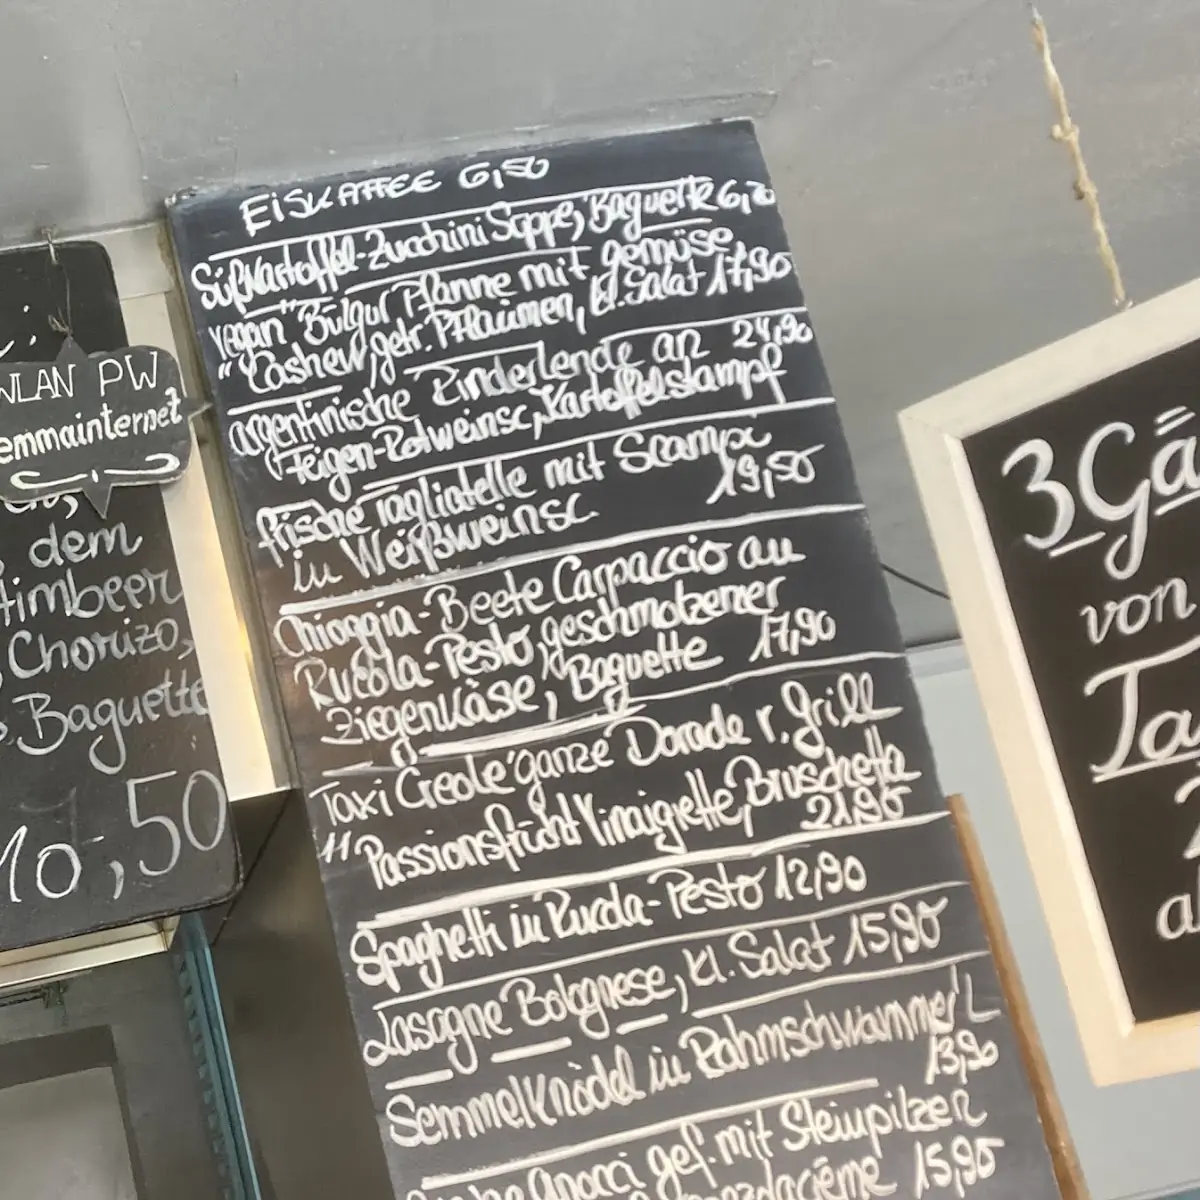 EiSKAFFEE 6,50
Süßkartoffel-Zucchini Suppe, Baguette 6,70
vegan" Bulgur Pfanne mit gemüse,
"Cashew, getr. Pflaumen, kl. Salat 17,90
argentinische Rinderlende an 24,90
Feigen-Rotweinsc, Kartoffelstampf
frische Tagliatelle mit Scampi
in Weißweinsc. 19,50
Chioggia-Beete Carpaccio an
Rucola-Pesto, geschmolzener
Ziegenkäse, Baguette 17,90
Taxi Creole' ganze Dorade v. Grill
"Passionsfrucht Vinaigrette, Bruschetta
21,90
Spaghetti in Rucola-Pesto 12,90
Lasagne Bolognese, kl. Salat 15,90
Semmelknödel in Rahmschwammerl
13,90
gef. mit Steinpilzen
15,90
WLAN PW
emmainternet
dem
Himbeer
Chorizo,
Baguette
10,50
3 Gä
von
Ta